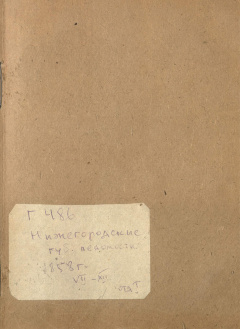 Г 486
Нижегородские
губ. ведомости.
1858 г.
VII - XII